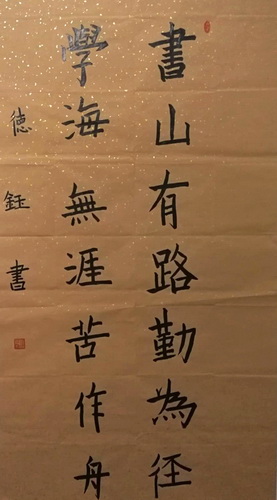 書山有路勤為徑
學海無涯苦作舟
德鈺書